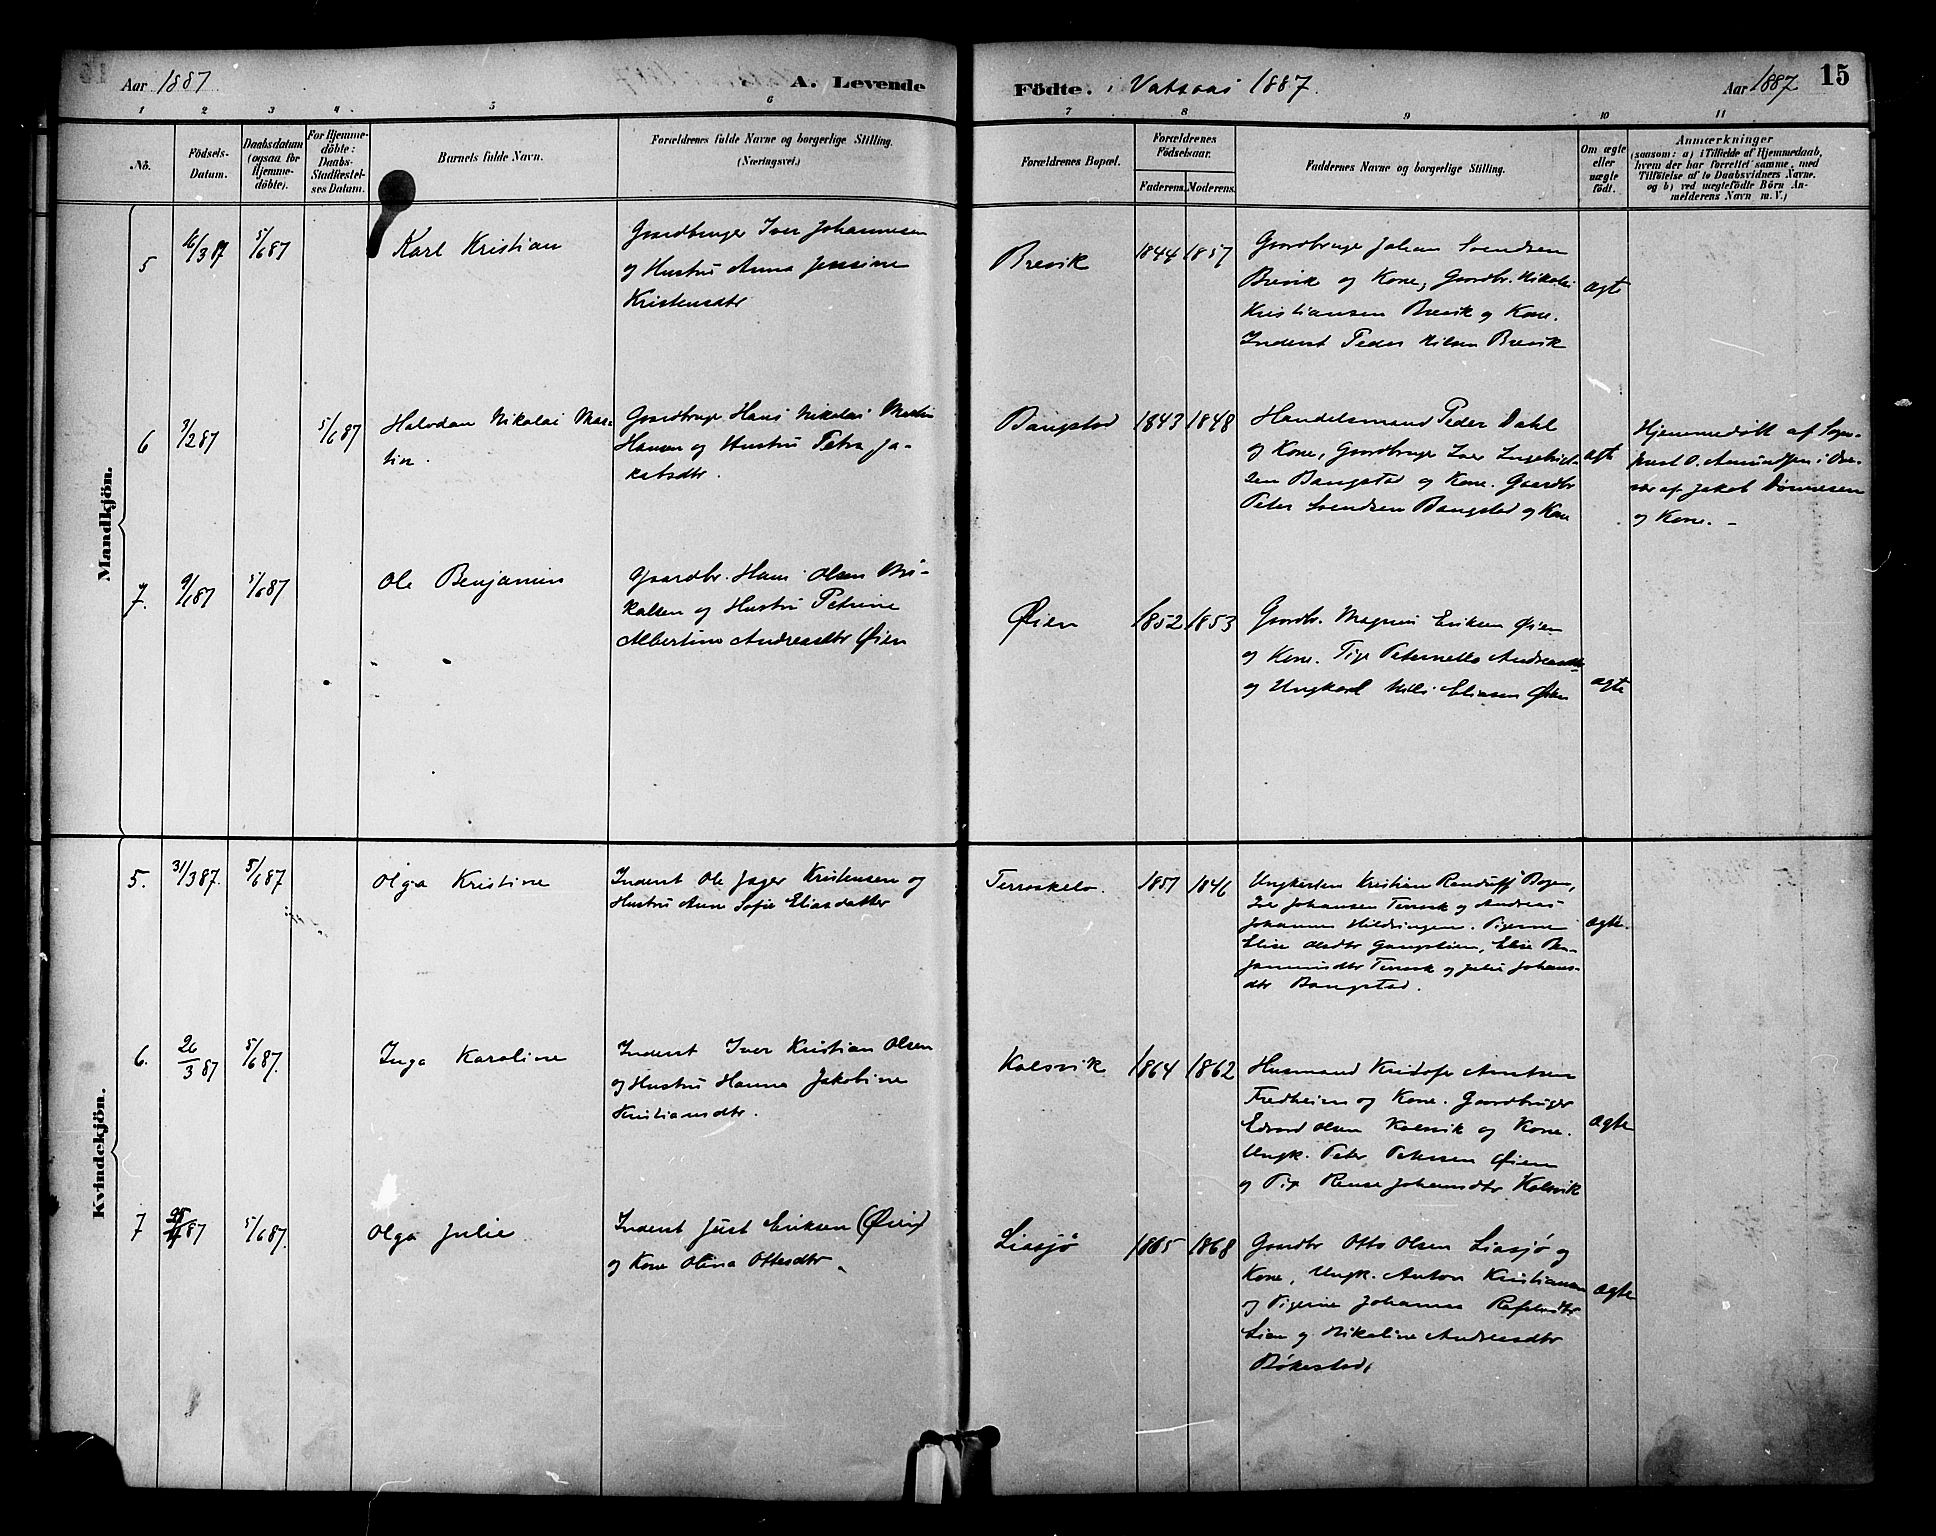 Aar 1887
A. Levende
Födte. i Vatsaas 1887.
Aar 1887
15
1 2 3 4 5 6 7 8 9 10 11
No.
Födsels-
Datum.
Daabsdatum
(ogsaa for
Hjemme-
döbte).
For Hjemme-
döbte:
Daabs-
Stadfæstel-
ses Datum.
Barnets fulde Navn.
Forældrenes fulde Navne og borgerlige Stilling.
(Næringsvei.)
Forældrenes Bopæl.
Forældrenes
Födselsaar.
Faderens. Moderens.
Faddernes Navne og borgerlige Stilling.
Om ægte
eller
uægte
födt.
Anmærkninger
(saasom: a) i Tilfælde af Hjemmedaab,
hvem der har forrettet samme, med
Tilföielse af to Daabsvidners Navne.
og b) ved uægtefödte Börn An-
melderens Navn m. V.)
Mandkjön.
5
16/3 87
5/6 87
Karl Kristian
Gaardbruger Iver Johannesen
og Hustru Anna Jensine
Kristensdtr
Brevik
1844 1857
Gaardbruge Johan Svendsen
Brevik og Kone, Gaardbr. Nikolai
Kristiansen Brevik og Kone.
Inderst Peder Nilsen Brevik
ægte
6
3/2 87
5/6 87
Halvdan Nikolai Mar-
tin.
Gaardbruge Hans Nikolai Martin
Hansen og Hustru Petra Ja-
kobsdtr.
Bangstad
1843 1848
Handelsmand Peder Dahl
og Kone, Gaardbruge Iver Ingebrigt-
sen Bangstad og Kone. Gaardbr
Peter Svendsen Bangstad og Kone
ægte
Hjemmedöbt af Sogne-
prest O. Amundsen i
af Jakob Dönnesen
og Kone. –
7.
9/1 87
5/6 87
Ole Benjamin
Gaardbr. Hans Olsen Mi-
kalsen og Hustru Petrine
Albertine Andreasdtr Øien
Øien
1852 1853
Gaardbr. Magnus Eriksen Øien
og Kone. Pige Peternella Andreasdtr
og Ungkarl Nils Eliasen Øien
ægte
Kvindekjön.
5.
31/3 87.
5/6 87
Olga Kristine
Inderst Ole Jager Kristensen og
Hustru Ane Sofie Eliasdatter
1857 1846
Ungkarlen Kristian Bogen,
Johansen Terraak og Andreas
Johannes Hildringen. Pigerne
Elise Olsdtr Gangstöien, Elise Ben-
jaminsdtr Terraak og Julie Johans-
dtr Bangstad.
ægte.
6.
26/3 87
5/6 87.
Inga Karoline
Inderst Iver Kristian Olsen
og Hustru Hanna Jakobine
Kristiansdtr.
Kalsvik
1864 1862
Husmand Kristofer Arntsen
Fredheim og Kone. Gaardbruger
Edvard Olsen Kalsvik og Kone.
Ungk. Peter Petersen Øien
og Pige Johansdtr Kalsvik
ægte
7
87
5/6 87.
Olga Julie
Inderst Just Eriksen (Øien)
og Kone Olina Ottesdtr.
Liasjö
1865 1868
Gaardbr Otto Olsen Liasjö og
Kone, Ungk. Anton Kristiansen
og Pigerne Johanna Rafaelsdtr
Lian og Nikoline Andreasdtr
Bökestad,
ægte